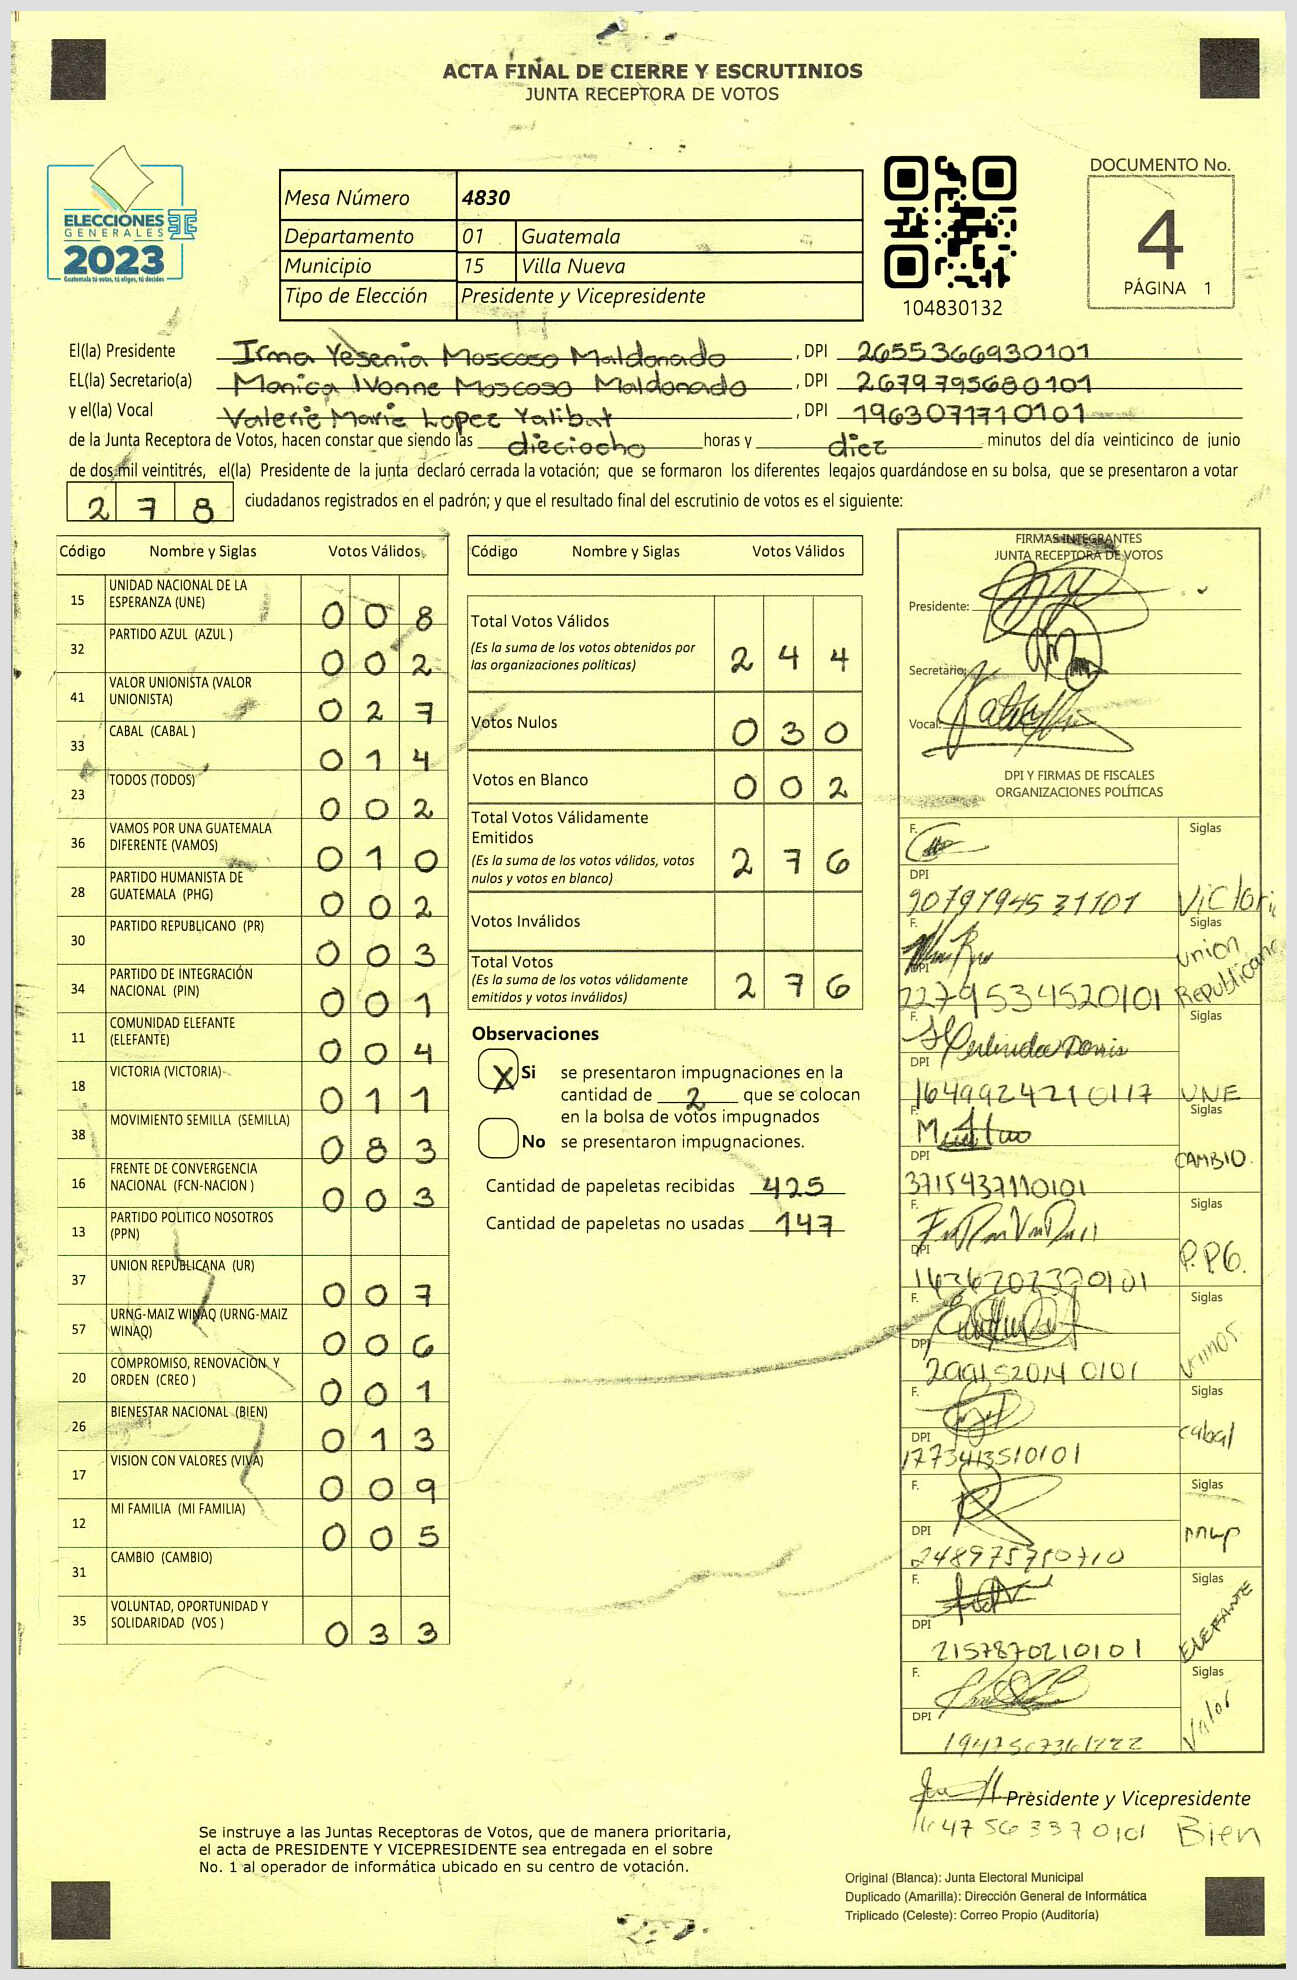 ACTA FINAL DE CIERRE Y ESCRUTINIOS
JUNTA RECEPTORA DE VOTOS
ELECCIONES
GENERALES
2023
Guatemala tú votas, tú eliges, tú decides
Mesa Número 4830
Departamento 01 Guatemala
Municipio 15 Villa Nueva
Tipo de Elección Presidente y Vicepresidente
104830132
DOCUMENTO No.
4
PÁGINA 1
El(la) Presidente Irma Yesenia Moscoso Maldonado , DPI 2655366930101
EL(la) Secretario(a) Monica Ivonne Moscoso Maldonado , DPI 2679795680101
y el(la) Vocal Valerie Marie Lopez Yalibat , DPI 1963071710101
de la Junta Receptora de Votos, hacen constar que siendo las dieciocho horas y diez minutos del día veinticinco de junio
de dos mil veintitrés, el(la) Presidente de la junta declaró cerrada la votación; que se formaron los diferentes legajos guardándose en su bolsa, que se presentaron a votar
278 ciudadanos registrados en el padrón; y que el resultado final del escrutinio de votos es el siguiente:
Código Nombre y Siglas Votos Válidos
15 UNIDAD NACIONAL DE LA ESPERANZA (UNE) 008
32 PARTIDO AZUL (AZUL ) 002
41 VALOR UNIONISTA (VALOR UNIONISTA) 027
33 CABAL (CABAL ) 014
23 TODOS (TODOS) 002
36 VAMOS POR UNA GUATEMALA DIFERENTE (VAMOS) 010
28 PARTIDO HUMANISTA DE GUATEMALA (PHG) 002
30 PARTIDO REPUBLICANO (PR) 003
34 PARTIDO DE INTEGRACIÓN NACIONAL (PIN) 001
11 COMUNIDAD ELEFANTE (ELEFANTE) 004
18 VICTORIA (VICTORIA) 011
38 MOVIMIENTO SEMILLA (SEMILLA) 083
16 FRENTE DE CONVERGENCIA NACIONAL (FCN-NACION ) 003
13 PARTIDO POLITICO NOSOTROS (PPN)
37 UNION REPUBLICANA (UR) 007
57 URNG-MAIZ WINAQ (URNG-MAIZ WINAQ) 006
20 COMPROMISO, RENOVACIÓN Y ORDEN (CREO ) 001
26 BIENESTAR NACIONAL (BIEN) 013
17 VISION CON VALORES (VIVA) 009
12 MI FAMILIA (MI FAMILIA) 005
31 CAMBIO (CAMBIO)
35 VOLUNTAD, OPORTUNIDAD Y SOLIDARIDAD (VOS ) 033
Código Nombre y Siglas Votos Válidos
Total Votos Válidos 244
(Es la suma de los votos obtenidos por
las organizaciones políticas)
Votos Nulos 030
Votos en Blanco 002
Total Votos Válidamente
Emitidos 276
(Es la suma de los votos válidos, votos
nulos y votos en blanco)
Votos Inválidos
Total Votos 276
(Es la suma de los votos válidamente
emitidos y votos inválidos)
Observaciones
X Si se presentaron impugnaciones en la
cantidad de 2 que se colocan
en la bolsa de votos impugnados
No se presentaron impugnaciones.
Cantidad de papeletas recibidas 425
Cantidad de papeletas no usadas 147
FIRMAS INTEGRANTES
JUNTA RECEPTORA DE VOTOS
Presidente:
Secretario:
Vocal:
DPI Y FIRMAS DE FISCALES
ORGANIZACIONES POLÍTICAS
F. Siglas
DPI
Victori
F. Siglas
DPI union
2279534520101 Republicano
F. Siglas
DPI
1649924210117 UNE
F. Siglas
DPI CAMBIO
3715437110101
F. Siglas
DPI P.P.G.
F. Siglas
DPI
F. Siglas
DPI cabal
1773413510101
F. Siglas
DPI
F. Siglas
DPI ELEFANTE
2157870210101
F. Siglas
DPI Valor
Presidente y Vicepresidente
1647563370101 Bien
Se instruye a las Juntas Receptoras de Votos, que de manera prioritaria,
el acta de PRESIDENTE Y VICEPRESIDENTE sea entregada en el sobre
No. 1 al operador de informática ubicado en su centro de votación.
Original (Blanca): Junta Electoral Municipal
Duplicado (Amarilla): Dirección General de Informática
Triplicado (Celeste): Correo Propio (Auditoría)